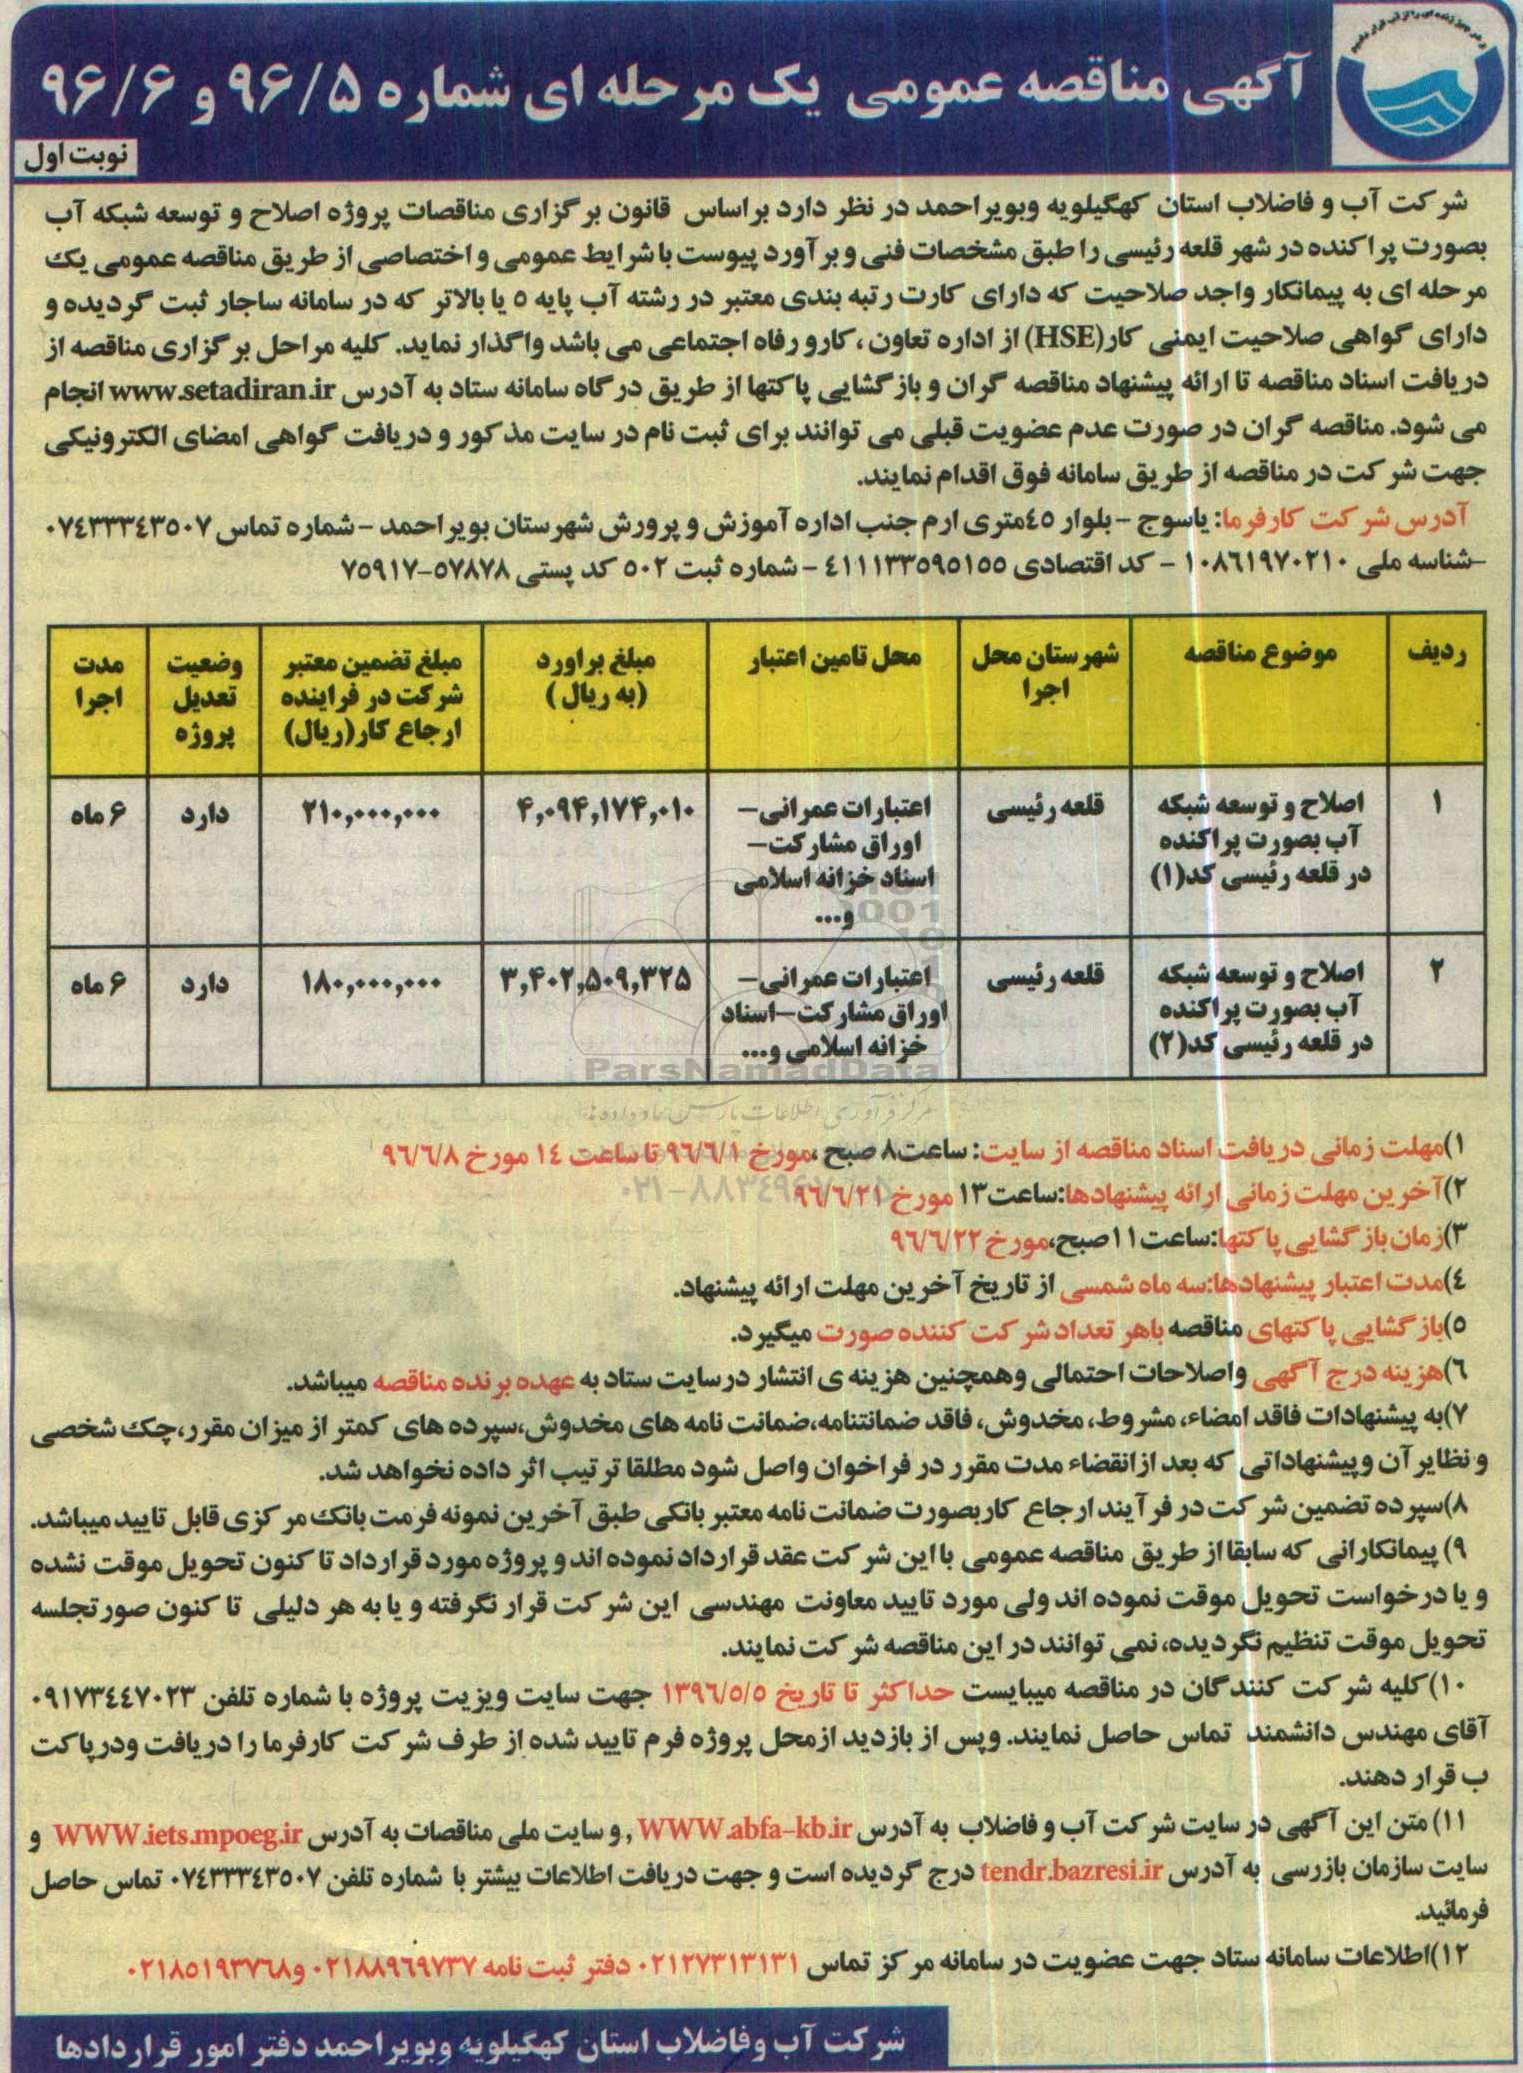 آگهی مناقصه عمومی یک مرحله ای شماره ۹۶/۵ و ۹۶/۶
نوبت اول
شرکت آب و فاضلاب استان کهگیلویه وبویراحمد در نظر دارد براساس قانون برگزاری مناقصات پروژه اصلاح و توسعه شبکه آب
بصورت پراکنده در شهر قلعه رئیسی را طبق مشخصات فنی و برآورد پیوست با شرایط عمومی و اختصاصی از طریق مناقصه عمومی یک
مرحله ای به پیمانکار واجد صلاحیت که دارای کارت رتبه بندی معتبر در رشته آب پایه ۵ یا بالاتر که در سامانه ساجار ثبت گردیده و
دارای گواهی صلاحیت ایمنی کار(HSE) از اداره تعاون ، کار و رفاه اجتماعی می باشد واگذار نماید. کلیه مراحل برگزاری مناقصه از
دریافت اسناد مناقصه تا ارائه پیشنهاد مناقصه گران و بازگشایی پاکتها از طریق درگاه سامانه ستاد به آدرس www.setadiran.ir انجام
می شود. مناقصه گران در صورت عدم عضویت قبلی می توانند برای ثبت نام در سایت مذکور و دریافت گواهی امضای الکترونیکی
جهت شرکت در مناقصه از طریق سامانه فوق اقدام نمایند.
آدرس شرکت کارفرما: یاسوج – بلوار ۴۵متری ارم جنب اداره آموزش و پرورش شهرستان بویراحمد – شماره تماس ۰۷۴۳۳۳۴۳۵۰۷
–شناسه ملی ۱۰۸۶۱۹۷۰۲۱۰ – کد اقتصادی ۴۱۱۱۳۳۵۹۵۱۵۵ – شماره ثبت ۵۰۲ کد پستی ۵۷۸۷۸–۷۵۹۱۷
ردیف موضوع مناقصه شهرستان محل اجرا محل تامین اعتبار مبلغ براورد (به ریال) مبلغ تضمین معتبر شرکت در فراینده ارجاع کار(ریال) وضعیت تعدیل پروژه مدت اجرا
۱ اصلاح و توسعه شبکه آب بصورت پراکنده در قلعه رئیسی کد(۱) قلعه رئیسی اعتبارات عمرانی– اوراق مشارکت– اسناد خزانه اسلامی و... ۴,۰۹۴,۱۷۴,۰۱۰ ۲۱۰,۰۰۰,۰۰۰ دارد ۶ ماه
۲ اصلاح و توسعه شبکه آب بصورت پراکنده در قلعه رئیسی کد(۲) قلعه رئیسی اعتبارات عمرانی– اوراق مشارکت–اسناد خزانه اسلامی و... ۳,۴۰۲,۵۰۹,۳۲۵ ۱۸۰,۰۰۰,۰۰۰ دارد ۶ ماه
ParsNamadData
مرکز فرآوری اطلاعات پارس نماد داده ها
۱)مهلت زمانی دریافت اسناد مناقصه از سایت: ساعت۸ صبح ،مورخ ۹۶/۶/۱ تا ساعت ۱۴ مورخ ۹۶/۶/۸
۲)آخرین مهلت زمانی ارائه پیشنهادها:ساعت۱۳ مورخ ۹۶/۶/۲۱
۳)زمان بازگشایی پاکتها:ساعت۱۱صبح،مورخ ۹۶/۶/۲۲
۴)مدت اعتبار پیشنهادها:سه ماه شمسی از تاریخ آخرین مهلت ارائه پیشنهاد.
۵)بازگشایی پاکتهای مناقصه باهر تعداد شرکت کننده صورت میگیرد.
۶)هزینه درج آگهی واصلاحات احتمالی وهمچنین هزینه ی انتشار درسایت ستاد به عهده برنده مناقصه میباشد.
۷)به پیشنهادات فاقد امضاء، مشروط، مخدوش، فاقد ضمانتنامه،ضمانت نامه های مخدوش،سپرده های کمتر از میزان مقرر،چک شخصی
و نظایر آن وپیشنهاداتی که بعد ازانقضاء مدت مقرر در فراخوان واصل شود مطلقا ترتیب اثر داده نخواهد شد.
۸)سپرده تضمین شرکت در فرآیند ارجاع کاربصورت ضمانت نامه معتبر بانکی طبق آخرین نمونه فرمت بانک مرکزی قابل تایید میباشد.
۹) پیمانکارانی که سابقا از طریق مناقصه عمومی با این شرکت عقد قرارداد نموده اند و پروژه مورد قرارداد تا کنون تحویل موقت نشده
و یا درخواست تحویل موقت نموده اند ولی مورد تایید معاونت مهندسی این شرکت قرار نگرفته و یا به هر دلیلی تا کنون صورتجلسه
تحویل موقت تنظیم نگردیده، نمی توانند در این مناقصه شرکت نمایند.
۱۰)کلیه شرکت کنندگان در مناقصه میبایست حداکثر تا تاریخ ۱۳۹۶/۵/۵ جهت سایت ویزیت پروژه با شماره تلفن ۰۹۱۷۳۴۴۷۰۲۳
آقای مهندس دانشمند تماس حاصل نمایند. وپس از بازدید ازمحل پروژه فرم تایید شده از طرف شرکت کارفرما را دریافت ودرپاکت
ب قرار دهند.
۱۱) متن این آگهی در سایت شرکت آب و فاضلاب به آدرس WWW.abfa-kb.ir , و سایت ملی مناقصات به آدرس WWW.iets.mpoeg.ir و
سایت سازمان بازرسی به آدرس tendr.bazresi.ir درج گردیده است و جهت دریافت اطلاعات بیشتر با شماره تلفن ۰۷۴۳۳۳۴۳۵۰۷ تماس حاصل
فرمائید.
۱۲)اطلاعات سامانه ستاد جهت عضویت در سامانه مرکز تماس ۰۲۱۲۷۳۱۳۱۳۱ دفتر ثبت نامه ۰۲۱۸۸۹۶۹۷۳۷ و۰۲۱۸۵۱۹۳۷۶۸
شرکت آب وفاضلاب استان کهگیلویه وبویراحمد دفتر امور قراردادها